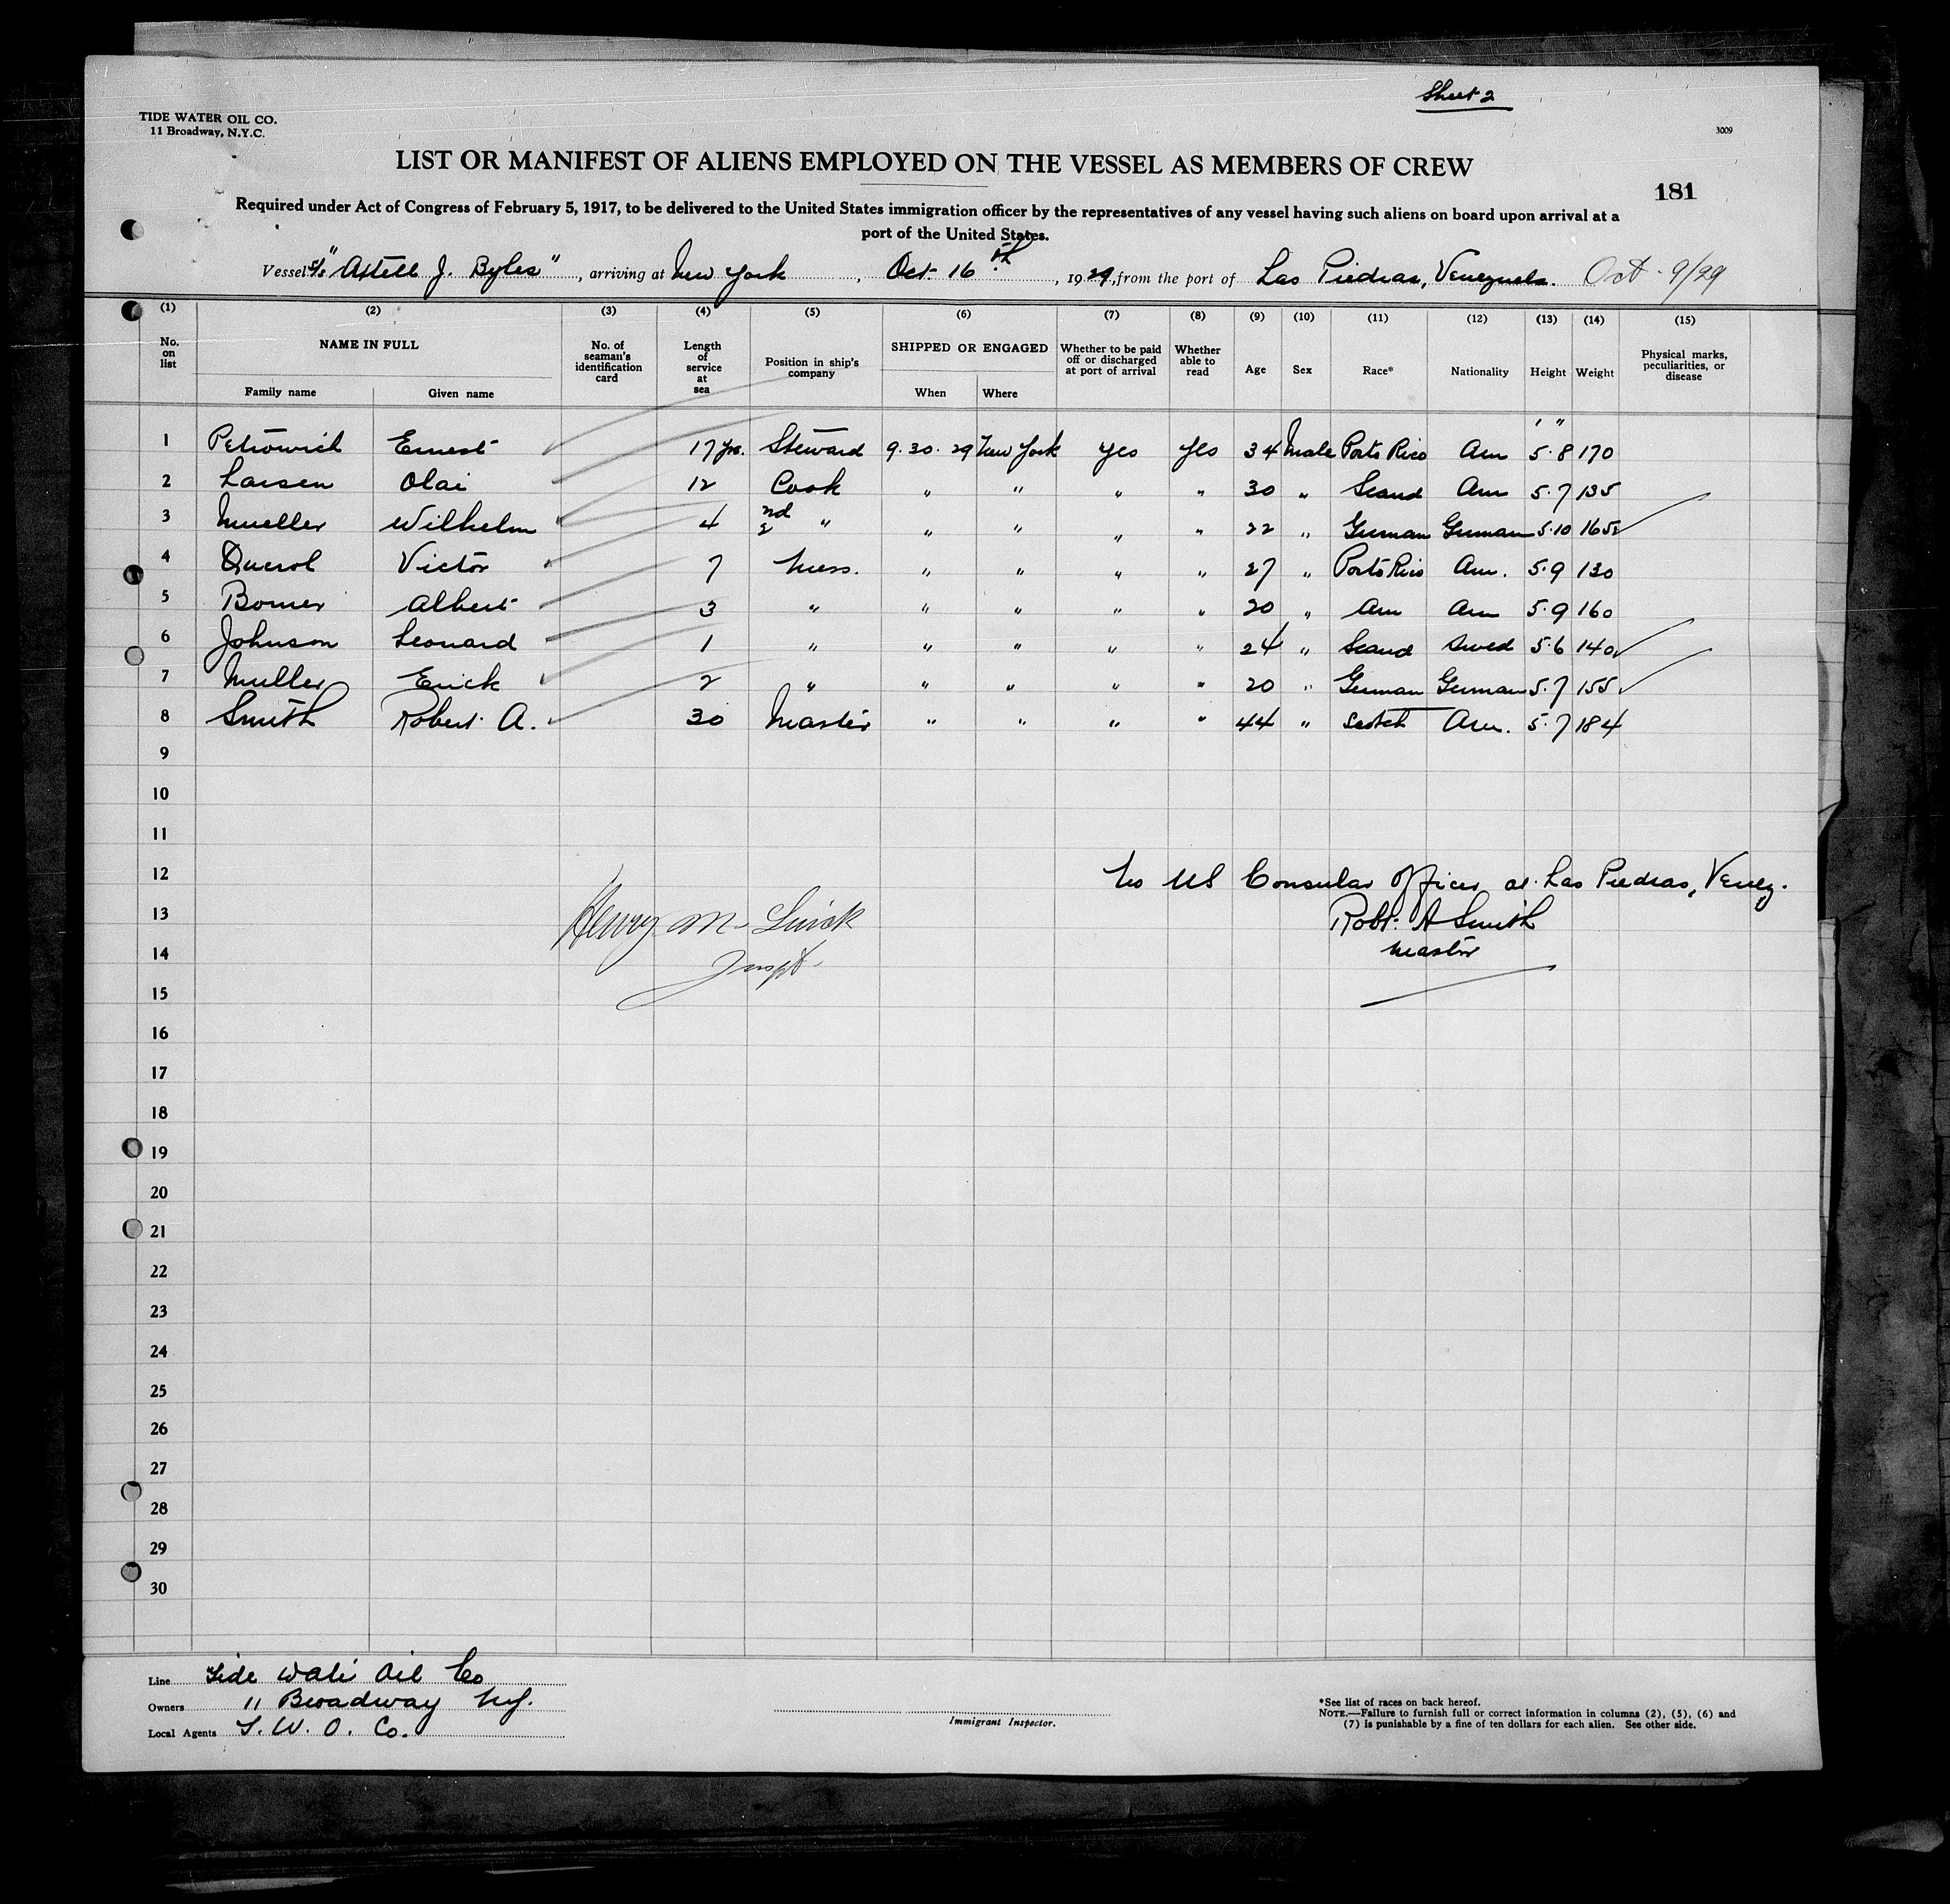 Sheet 2
TIDE WATER OIL CO.
11 Broadway, N.Y.C.
3009
LIST OR MANIFEST OF ALIENS EMPLOYED ON THE VESSEL AS MEMBERS OF CREW
181
Required under Act of Congress of February 5, 1917, to be delivered to the United States immigration officer by the representatives of any vessel having such aliens on board upon arrival at a
port of the United States.
Vessel S/S "Axtell J. Byles", arriving at New York, Oct 16th, 1929, from the port of Las Piedras, Venezuela. Oct - 9/29
(1) (2) (3) (4) (5) (6) (7) (8) (9) (10) (11) (12) (13) (14) (15)
No. on list NAME IN FULL Family name Given name No. of seaman's identification card Length of service at sea Position in ship's company SHIPPED OR ENGAGED When Where Whether to be paid off or discharged at port of arrival Whether able to read Age Sex Race* Nationality Height Weight Physical marks, peculiarities, or disease
' "
1 Petrowich Ernest 17 yrs. Steward 9.30.29 New York Yes Yes 34 Male Porto Rico Am 5.8 170
2 Larsen Olai 12 Cook " " " " 30 " Scand Am 5.7 135
3 Mueller Wilhelm 4 2nd " " " " " 22 " German German 5.10 165
4 Querol Victor 7 Mess. " " " " 27 " Porto Rico Am. 5.9 130
5 Bomer Albert 3 " " " " " 20 " Am Am 5.9 160
6 Johnson Leonard 1 " " " " " 24 " Scand Swed 5.6 140
7 Muller Erick 2 " " " " " 20 " German German 5.7 155
8 Smith Robert A. 30 Master " " " " 44 " Scotch Am. 5.7 184
9
10
11
12 No US Consular Officer at Las Piedras, Venez.
13 Henry M. Robt. A Smith
14 Inspt. Master
15
16
17
18
19
20
21
22
23
24
25
26
27
28
29
30
Line Tide Water Oil Co
Owners 11 Broadway N.Y.
Local Agents T. W. O. Co.
Immigrant Inspector.
*See list of races on back hereof.
NOTE.—Failure to furnish full or correct information in columns (2), (5), (6) and
(7) is punishable by a fine of ten dollars for each alien. See other side.